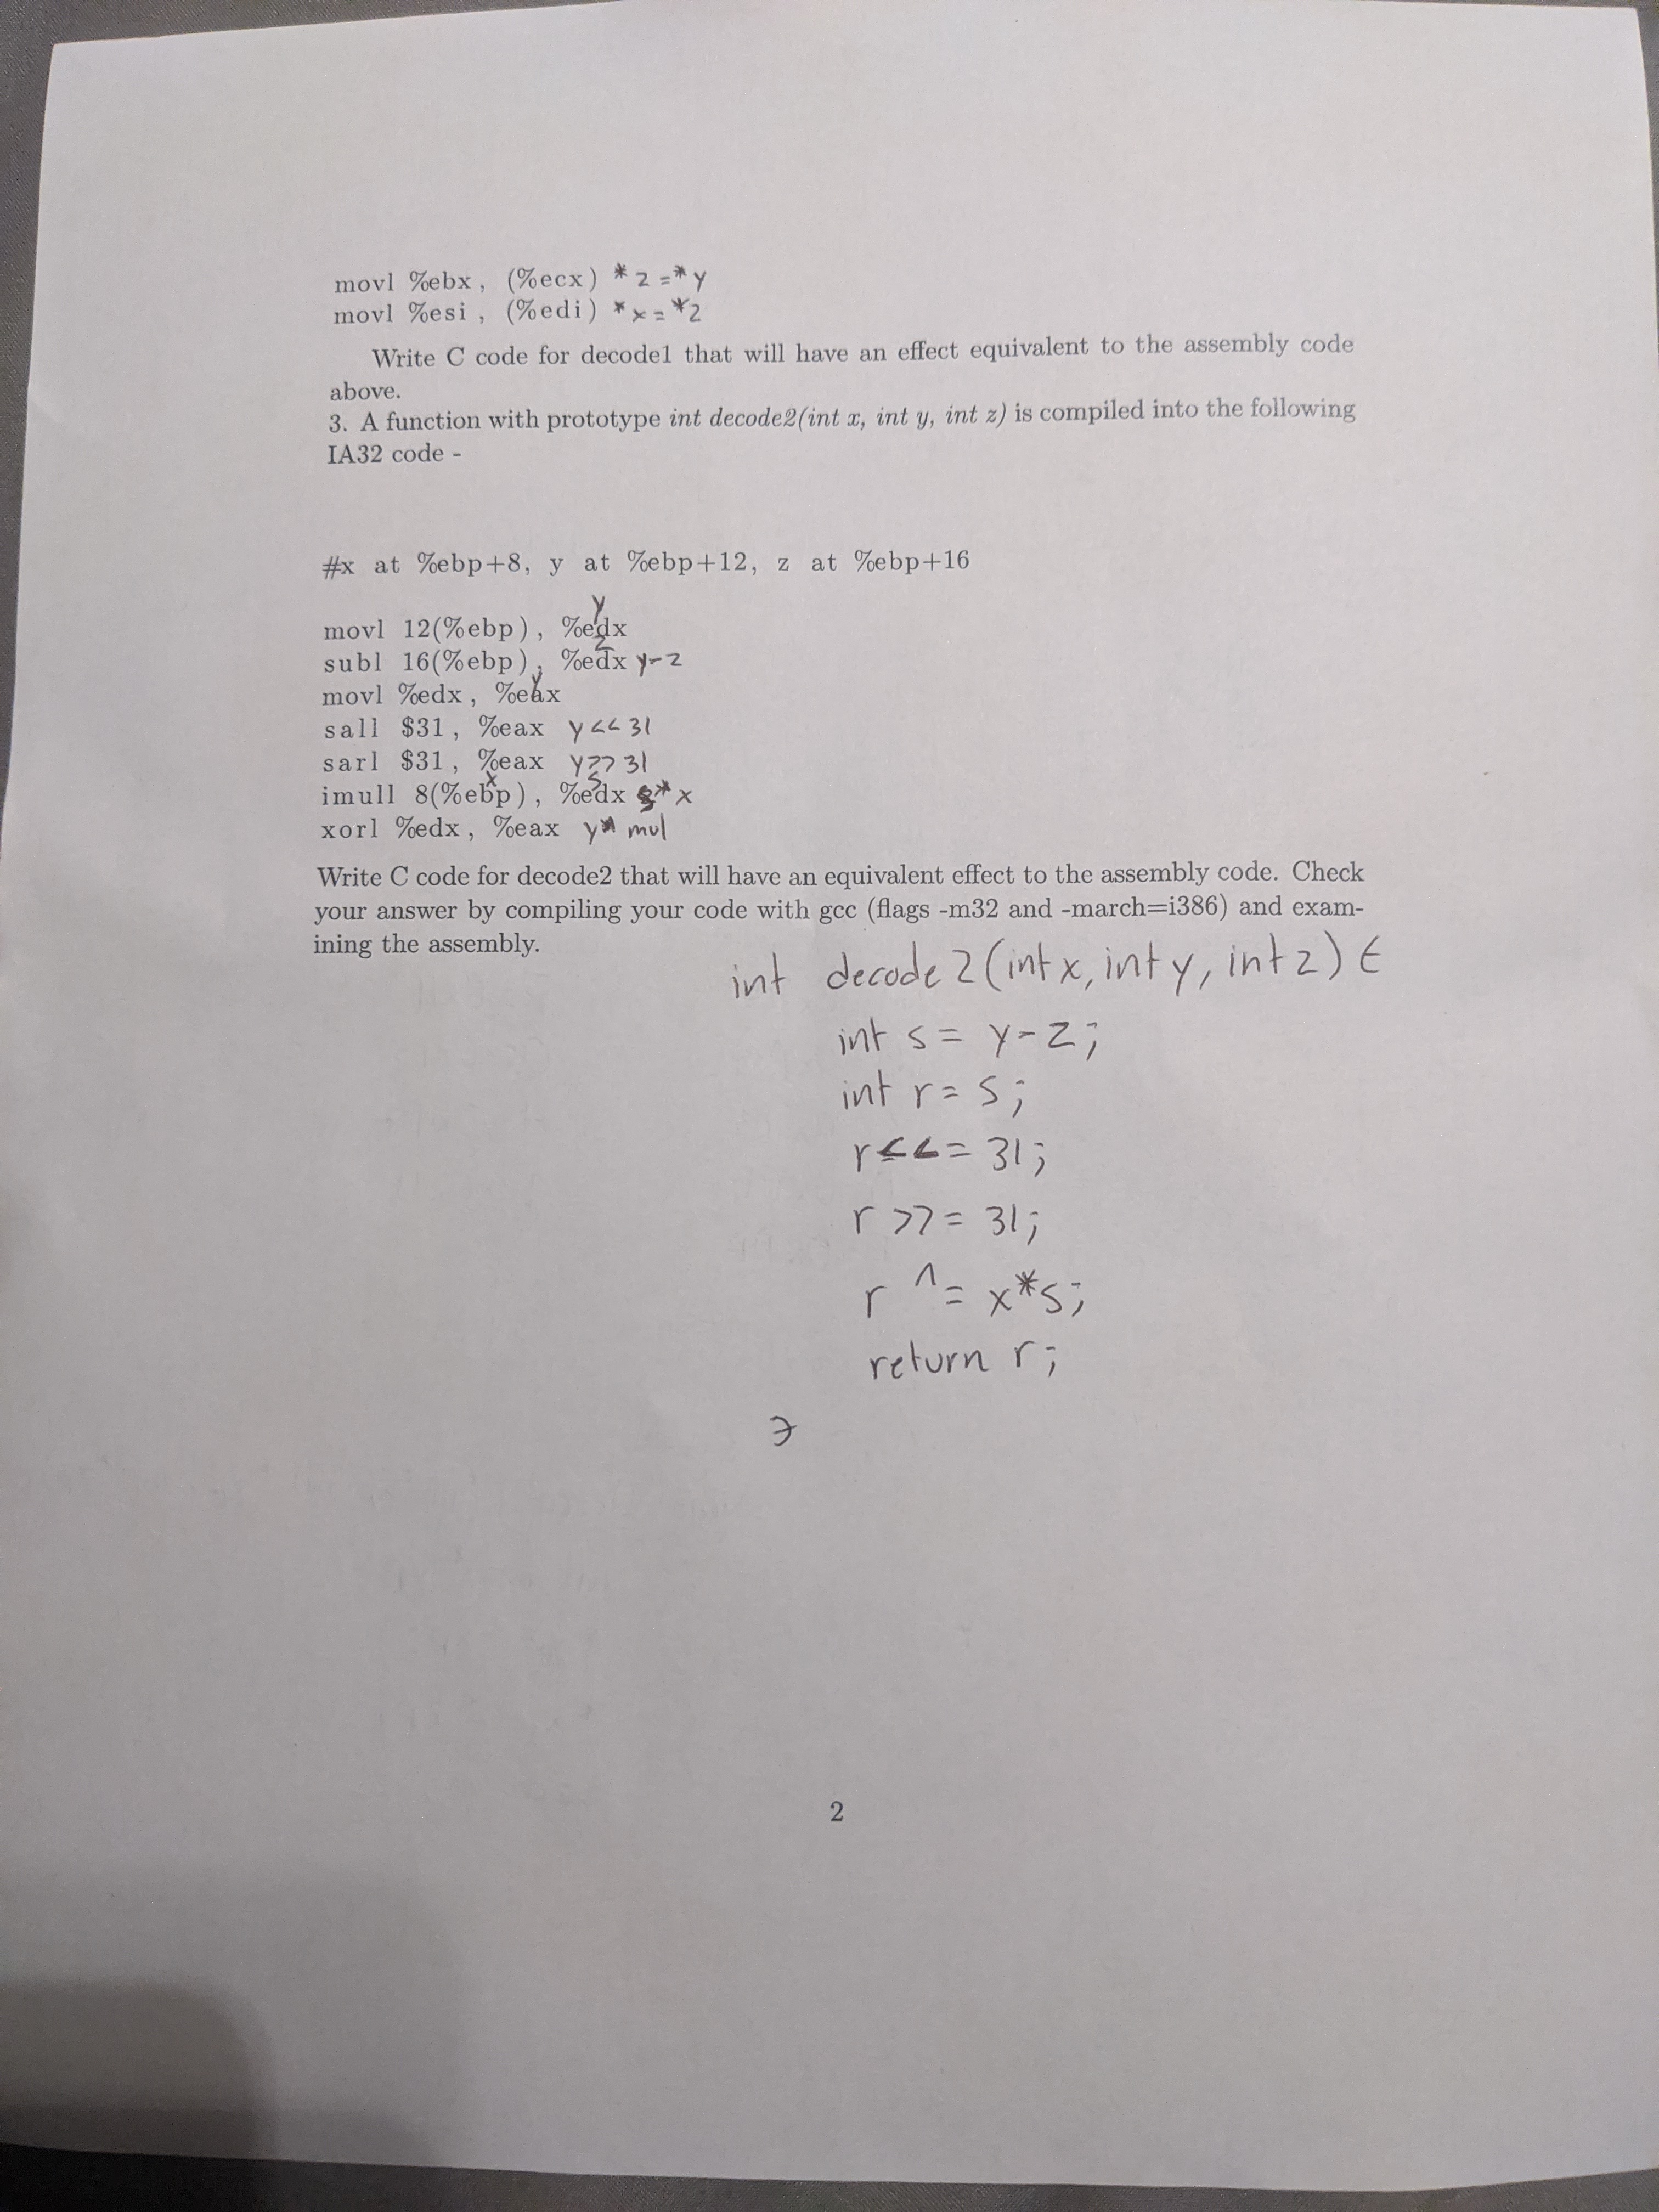 movl %ebx, (%ecx) *z=*y
movl %esi, (%edi) *x=*z
Write C code for decode1 that will have an effect equivalent to the assembly code
above.
3. A function with prototype int decode2(int x, int y, int z) is compiled into the following
IA32 code -
#x at %ebp+8, y at %ebp+12, z at %ebp+16
y
movl 12(%ebp), %edx
z
subl 16(%ebp), %edx y-z
y
movl %edx, %eax
sall $31, %eax y<<31
sarl $31, %eax y>>31
x s
imull 8(%ebp), %edx s*x
xorl %edx, %eax y^ mul
Write C code for decode2 that will have an equivalent effect to the assembly code. Check
your answer by compiling your code with gcc (flags -m32 and -march=i386) and exam-
ining the assembly.
int decode2(int x, int y, int z) {
int s = y-z;
int r = s;
r<<= 31;
r >>= 31;
r ^= x*s;
return r;
}
2